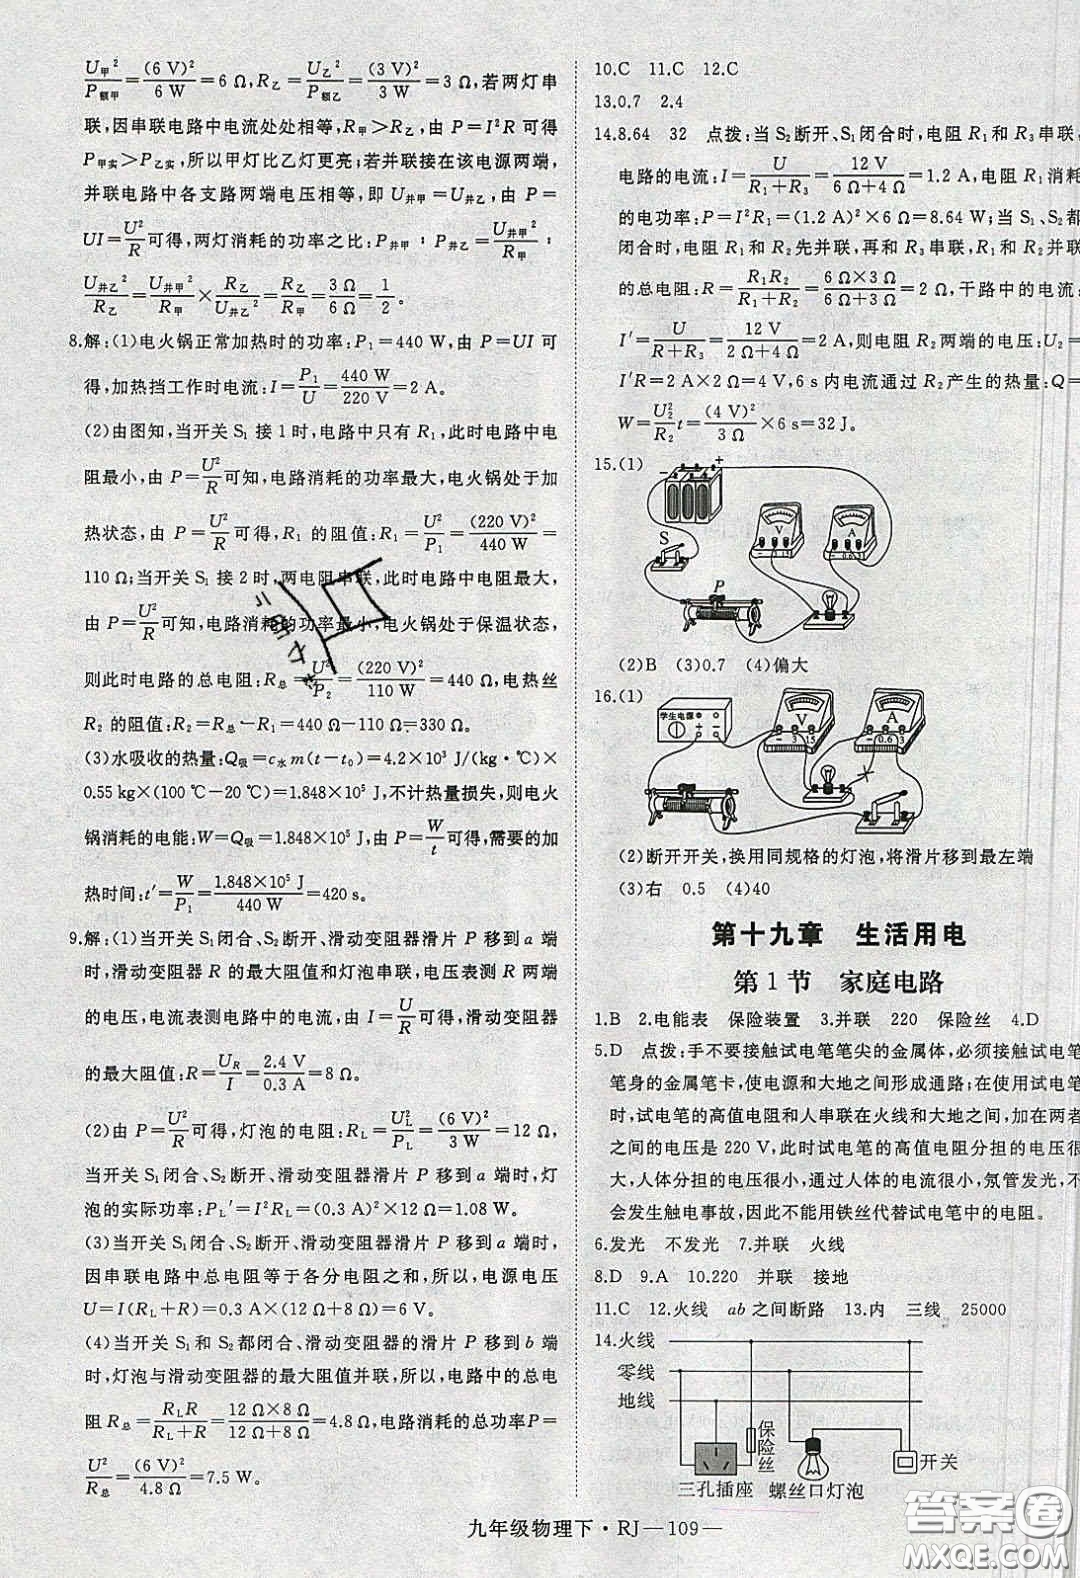 U甲²/P额甲=(6 V)²/6 W=6 Ω,R乙=U乙²/P额乙=(3 V)²/3 W=3 Ω,若两灯串
联,因串联电路中电流处处相等,R甲>R乙,由 P=I²R 可得
P甲实>P乙实,所以甲灯比乙灯更亮;若并联接在该电源两端,
并联电路中各支路两端电压相等,即 U并甲=U并乙,由 P=
UI=U²/R可得,两灯消耗的功率之比:P并甲:P并乙=U并甲²/R甲:
U并乙²/R乙=U并甲²/R甲×R乙/U并乙²=R乙/R甲=3 Ω/6 Ω=1/2。
8.解:(1)电火锅正常加热时的功率:P₁=440 W,由 P=UI 可
得,加热挡工作时电流:I=P₁/U=440 W/220 V=2 A。
(2)由图知,当开关 S₁ 接 1 时,电路中只有 R₁,此时电路中电
阻最小,由 P=U²/R可知,电路消耗的功率最大,电火锅处于加
热状态,由 P=U²/R可得,R₁ 的阻值:R₁=U²/P₁=(220 V)²/440 W=
110 Ω;当开关 S₁ 接 2 时,两电阻串联,此时电路中电阻最大,
由 P=U²/R可知,电路消耗的功率最小,电火锅处于保温状态,
则此时电路的总电阻:R总=U²/P₂=(220 V)²/110 W=440 Ω,电热丝
R₂ 的阻值:R₂=R总−R₁=440 Ω−110 Ω=330 Ω。
(3)水吸收的热量:Q吸=c水m(t−t₀)=4.2×10³ J/(kg·℃)×
0.55 kg×(100 ℃−20 ℃)=1.848×10⁵ J,不计热量损失,则电火
锅消耗的电能:W=Q吸=1.848×10⁵ J,由 P=W/t可得,需要的加
热时间:t′=W/P₁=1.848×10⁵ J/440 W=420 s。
9.解:(1)当开关 S₁闭合、S₂断开、滑动变阻器滑片 P 移到 a 端
时,滑动变阻器 R 的最大阻值和灯泡串联,电压表测 R 两端
的电压,电流表测电路中的电流,由 I=U/R可得,滑动变阻器
的最大阻值:R=U_R/I=2.4 V/0.3 A=8 Ω。
(2)由 P=U²/R可得,灯泡的电阻:R_L=U_L²/P_L=(6 V)²/3 W=12 Ω,
当开关 S₁闭合、S₂断开、滑动变阻器滑片 P 移到 a 端时,灯
泡的实际功率:P_L′=I²R_L=(0.3 A)²×12 Ω=1.08 W。
(3)当开关 S₁闭合、S₂断开、滑动变阻器滑片 P 移到 a 端时,
因串联电路中总电阻等于各分电阻之和,所以,电源电压
U=I(R_L+R)=0.3 A×(12 Ω+8 Ω)=6 V。
(4)当开关 S₁ 和 S₂都闭合、滑动变阻器的滑片 P 移到 b 端
时,灯泡与滑动变阻器的最大阻值并联,所以,电路中的总电
阻 R总=R_LR/(R_L+R)=12 Ω×8 Ω/(12 Ω+8 Ω)=4.8 Ω,电路消耗的总功率P=
U²/R总=(6 V)²/4.8 Ω=7.5 W。
10.C 11.C 12.C
13.0.7 2.4
14.8.64 32 点拨:当 S₂断开、S₁闭合时,电阻 R₁和 R₃串联,
电路的电流:I=U/(R₁+R₃)=12 V/(6 Ω+4 Ω)=1.2 A,电阻 R₁消
的电功率:P=I²R₁=(1.2 A)²×6 Ω=8.64 W;当 S₁、S₂都
闭合时,电阻 R₁和 R₂先并联,再和 R₃串联,R₁和 R₂并联
的总电阻:R=R₁R₂/(R₁+R₂)=6 Ω×3 Ω/(6 Ω+3 Ω)=2 Ω,干路中的电流:
I′=U/(R+R₃)=12 V/(2 Ω+4 Ω)=2 A,则电阻 R₂两端的电压:U₂
I′R=2 A×2 Ω=4 V,6 s内电流通过 R₂产生的热量:Q=
W=U₂²/R₂t=(4 V)²/3 Ω×6 s=32 J。
15.(1)
− +
S
P
V
− 3 15
A
− 0.6 3
(2)B (3)0.7 (4)偏大
16.(1)
学生电源
V
− 3 15
A
− 0.6 3
(2)断开开关,换用同规格的灯泡,将滑片移到最左端
(3)右 0.5 (4)40
第十九章 生活用电
第 1 节 家庭电路
1.B 2.电能表 保险装置 3.并联 220 保险丝 4.D
5.D 点拨:手不要接触试电笔笔尖的金属体,必须接触试电笔
笔身的金属笔卡,使电源和大地之间形成通路;在使用试电笔
时,试电笔的高值电阻和人串联在火线和大地之间,加在两者
之间的电压是 220 V,此时试电笔的高值电阻分担的电压很
大,人体分担的电压很小,通过人体的电流很小,氖管发光,不
会发生触电事故,因此不能用铁丝代替试电笔中的电阻。
6.发光 不发光 7.并联 火线
8.D 9.A 10.220 并联 接地
11.C 12.火线 ab之间断路 13.内 三线 25000
14.火线
零线
地线
保险丝
开关
三孔插座 螺丝口灯泡
九年级物理下·RJ—109—
答案圈
MXQE.COM